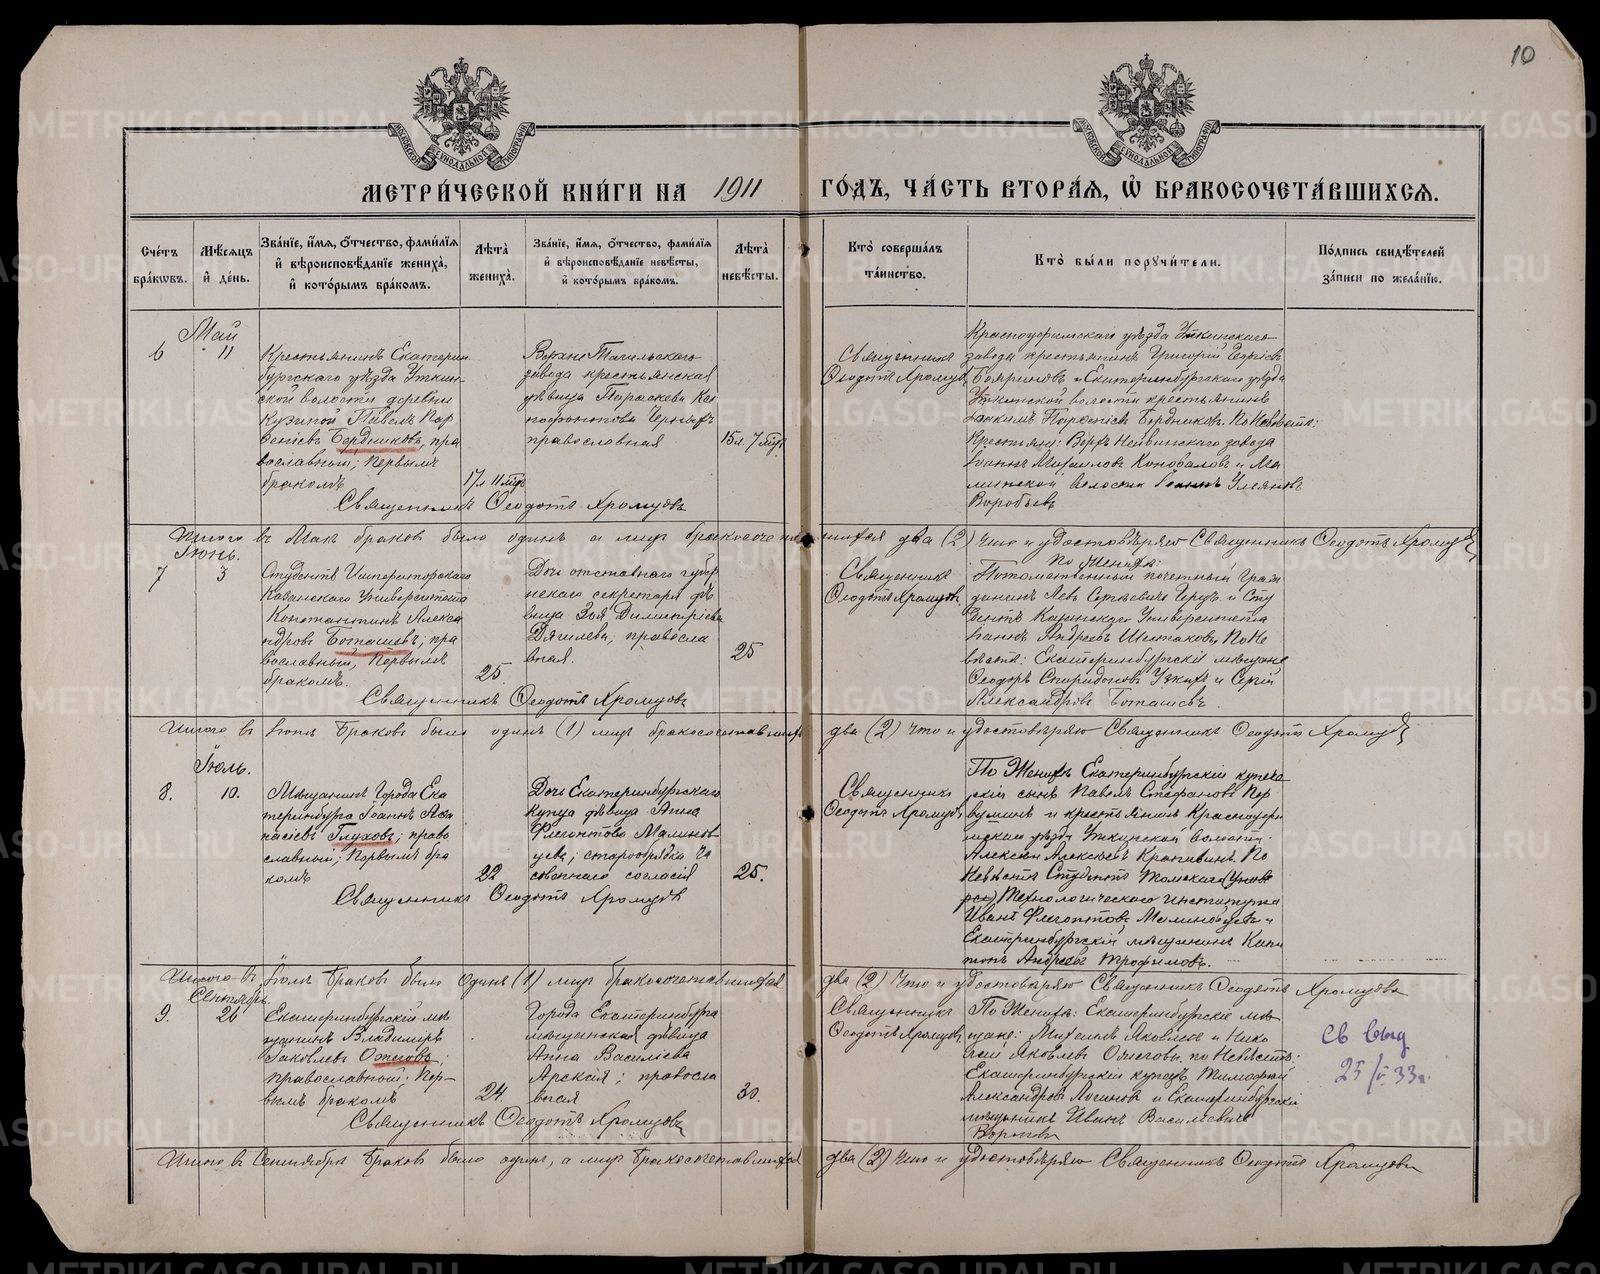 10
МЕТРИ́ЧЕСКОЙ КНИ́ГИ НА 1911 ГО́ДЪ, ЧА́СТЬ ВТОРА́Я, Ѡ БРАКОСОЧЕТА́ВШИХСЯ.
Сче́тъ бра́кѡвъ.
Мѣ́сяцъ и де́нь.
Зва́нїе, и́мя, о́тчество, фами́лїя и вѣроисповѣ́данїе жениха̀, и кото́рымъ бра́комъ.
Лѣта̀ жениха̀.
Зва́нїе, и́мя, о́тчество, фами́лїя и вѣроисповѣ́данїе невѣ́сты, и кото́рымъ бра́комъ.
Лѣта̀ невѣ́сты.
Кто̀ соверша́лъ та́инство.
Кто̀ бы́ли порꙋчи́тели.
По́дпись свидѣ́телей за́писи по жела́нїю.
Май
6
11
Крестьянинъ Екатерин
бургскаго уѣзда Уткин
ской волости деревни
Кузиной Павелъ Пар
ѳеніевъ Бердниковъ, пра
вославный; первымъ
бракомъ
17 л 11 мѣс
Верхне Тагильскаго
завода крестьянская
дѣвица Параскева
православная
15 л. 7 мѣс
Священникъ
Ѳеодотъ Хромцовъ
Красноуфимскаго уѣзда Уткинскаго
завода крестьянинъ Григорій
и Екатеринбургскаго уѣзда
Уткинской волости крестьянинъ
Парѳеніевъ Бердниковъ. По Невѣстѣ:
Крестьяне: Верхъ Нейвинскаго завода
Іоаннъ Михаиловъ Коноваловъ и
волости
Воробьевъ
Священникъ Ѳеодотъ Хромцовъ
Итого въ Маѣ браковъ было одинъ а лицъ бракосочетавшихся два (2) что и удостовѣряю Священникъ Ѳеодотъ Хромцовъ
Іюнь.
7
3
Студентъ Императорскаго
Казанскаго Университета
Константинъ Алекса
ндровъ Боташевъ; пра
вославный, первымъ
бракомъ.
25
Дочь отставного губер
нскаго секретаря дѣ
вица Зоя Димитріева
Дягилева, правосла
вная.
25
Священникъ
Ѳеодотъ Хромцовъ
По Женихѣ:
Потомственный почетный граж
данинъ Левъ Сергѣевичъ и Сту
дентъ Казанскаго Университета
Андреевъ Шестаковъ, По Не
вѣстѣ: Екатеринбургскіе мѣщане
Ѳеодоръ Спиридоновъ Узкихъ и Сергій
Александровъ Боташевъ.
Священникъ Ѳеодотъ Хромцовъ
Итого въ Іюнѣ браковъ было одинъ (1) лицъ бракосочетавшихся два (2) что и удостовѣряю Священникъ Ѳеодотъ Хромцовъ
Іюль.
8.
10.
Мѣщанинъ Города Ека
теринбурга Іоаннъ Аѳа
насіевъ Глуховъ; право
славный; первымъ бра
комъ
22
Дочь Екатеринбургскаго
купца дѣвица Анна
Флегонтова Малинов
цева; старообрядка ча
совеннаго согласія
25.
Священникъ
Ѳеодотъ Хромцовъ
По Женихѣ Екатеринбургскій купече
скій сынъ Павелъ Стефановъ Пер
вушинъ и крестьянинъ Красноуфи
мскаго уѣзда Уткинской волости
Алексѣй Алексѣевъ Крапивинъ По
Невѣстѣ Студентъ Томскаго
Технологическаго института
Иванъ Флегонтовъ Малиновцевъ и
Екатеринбургскій мѣщанинъ Капи
тонъ Андреевъ Трофимовъ.
Священникъ Ѳеодотъ Хромцовъ
Итого въ Іюлѣ браковъ было одинъ (1) лицъ бракосочетавшихся два (2) что и удостовѣряю Священникъ Ѳеодотъ Хромцовъ
Сентябрь
9.
26
Екатеринбургскій мѣ
щанинъ Владиміръ
Іаковлевъ Ожеговъ;
православный; пер-
вымъ бракомъ
24.
Города Екатеринбурга
мѣщанская дѣвица
Анна Василіева
Арская; правосла
вная
30.
Священникъ
Ѳеодотъ Хромцовъ
По Женихѣ: Екатеринбургскіе мѣ
щане: Михаилъ Яковлевъ и Нико
лай Яковлевъ Ожеговы, по Невѣстѣ:
Екатеринбургскій купецъ Тимофей
Александровъ Логиновъ и Екатеринбургскій
мѣщанинъ Иванъ Васильевичъ
Св выд
25/V 33г.
Священникъ Ѳеодотъ Хромцовъ
Итого въ Сентябрѣ браковъ было одинъ, а лицъ бракосочетавшихся два (2) что и удостовѣряю Священникъ Ѳеодотъ Хромцовъ
METRIKI.GASO-URAL.RU